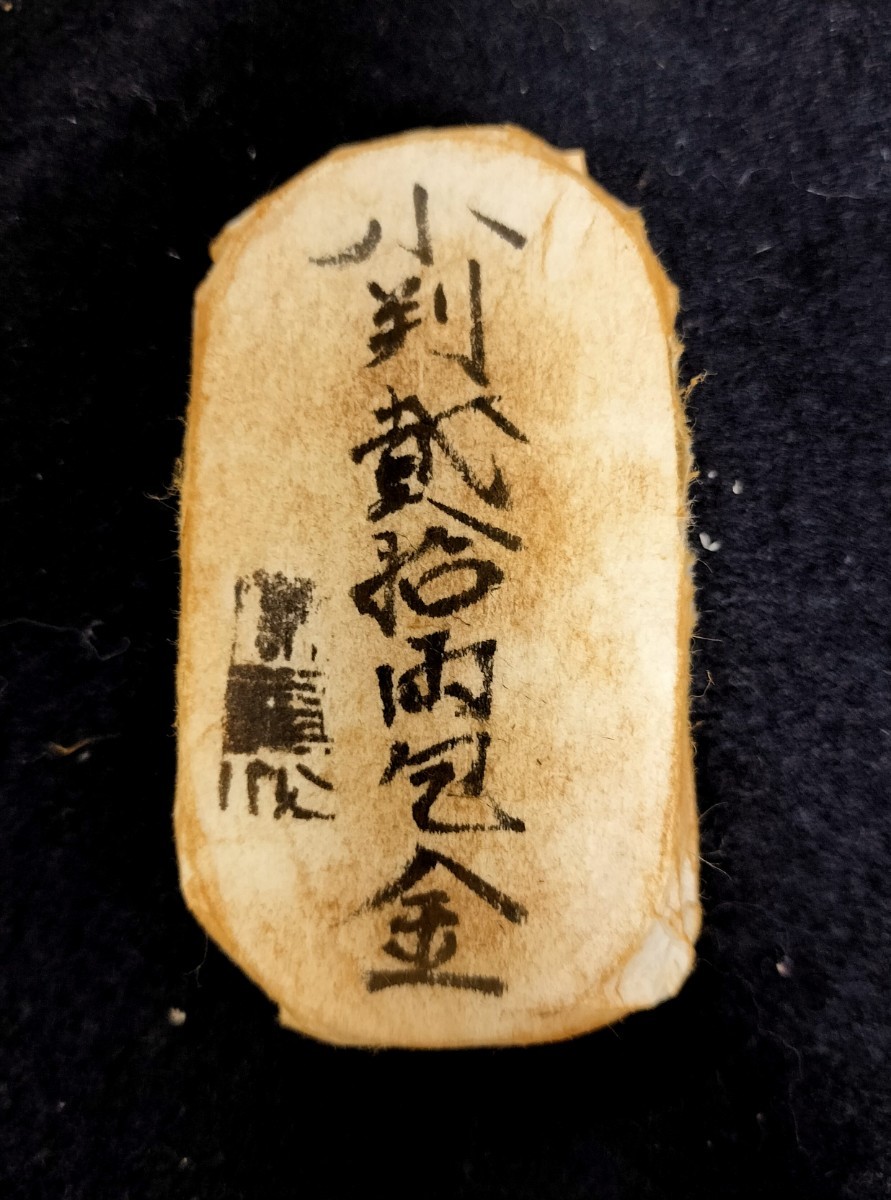 小判貳拾両包金